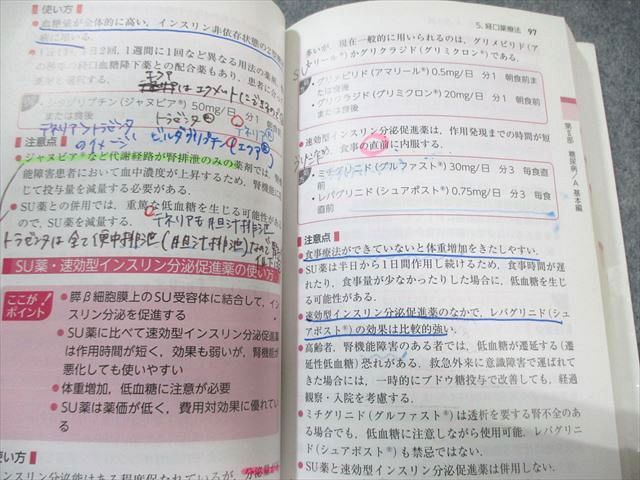 使い方
●血糖値が全体的に高い,インスリン非依存状態の2型糖
に用いる.
1日1回,1日2回,1週間に1回など異なる用法の薬剤,
経口血糖降下薬との配合薬もあり,患者に合
エクア
●シタグリプチン(ジャヌビア®)50mg/日 分1 朝食前
または食後
トラゼンタ
テネリア
ビルダグリプチン(エクア®)
注意点
●ジャヌビア®など代謝経路が腎排泄のみの薬剤では,
能障害患者において血中濃度が上昇するため,腎機能に
じて投与量を減量する必要がある.
●SU薬との併用では,重篤な低血糖を生じる可能性があ
ので,SU薬を減量する.
テネリアも胆汁排泄
トラゼンタは全て便中排泄(胆汁排泄)なので
SU薬・速効型インスリン分泌促進薬の使い方
ここが!
ポイント
●膵β細胞膜上のSU受容体に結合して,イン
スリン分泌を促進する
●SU薬に比べて速効型インスリン分泌促進薬
は作用時間が短く,効果も弱いが,腎機能が
悪化しても使いやすい
●体重増加,低血糖に注意が必要
●SU薬は薬価が低く,費用対効果に優れてい
る
使い方
インスリン分泌能はある程度保たれているが,分泌量が
5.経口薬療法 97
多いが,現在一般的に用いられるのは,グリメピリド(ア
マリール®)かグリクラジド(グリミクロン®)である.
●グリメピリド(アマリール®)0.5mg/日 分1 朝食前ま
たは食後
●グリクラジド(グリミクロン®)20mg/日 分1 朝食前
または食後
●速効型インスリン分泌促進薬は,作用発現までの時間が短
め,食事の直前に内服する.
●ミチグリニド(グルファスト®)30mg/日 分3 毎食直
前
●レパグリニド(シュアポスト®)0.75mg/日 分3 毎食
直前
第Ⅱ部 糖尿病/A 基本編
注意点
●食事療法ができていないと体重増加をきたしやすい.
●SU薬は半日から1日間作用し続けるため,食事時間が遅
れたり,食事量が少なかったりした場合に,低血糖を生じ
る可能性がある.
●速効型インスリン分泌促進薬のなかで,レパグリニド(シュ
アポスト®)の効果は比較的強い.
●高齢者,腎機能障害のある者では,低血糖が遷延する(遷
延性低血糖)恐れがある.救急外来に意識障害で運ばれて
きた場合には,一時的にブドウ糖投与で改善しても,経過
観察・入院を考慮する.
●ミチグリニド(グルファスト®)は透析を要する腎不全のあ
る場合でも,低血糖に注意しながら使用可能.レパグリニ
ド(シュアポスト®)も禁忌ではない.
●SU薬と速効型インスリン分泌促進薬は併用しない.